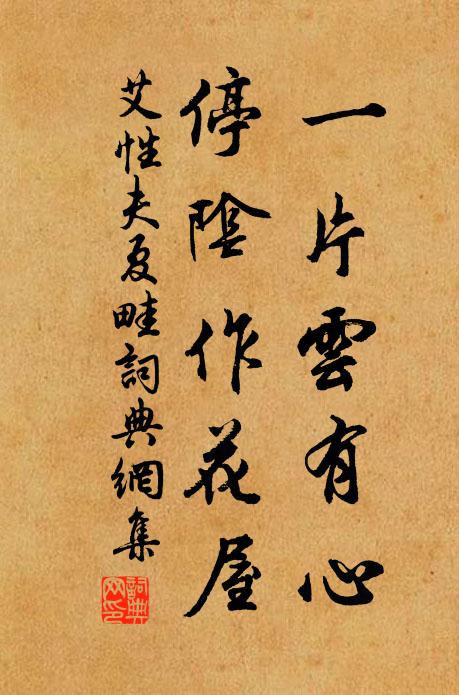 一片雲有心
停陰作花屋
艾性夫夏畦詞典網集
詞典网印